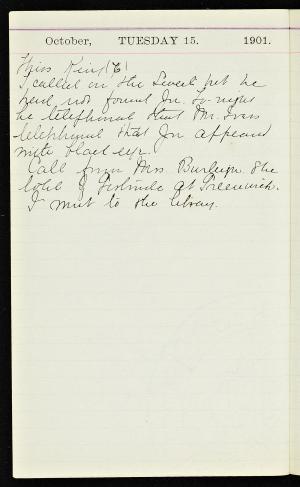 October, TUESDAY 15. 1901.
Miss King (6)
I called on the but he
had not found Jn. To night
he telephoned that Mr. Ivas
telephoned that Jn appeared
with black eye.
Call from Mrs. Burleigh. She
told of Gertrude at Greenwich.
I went to the library.